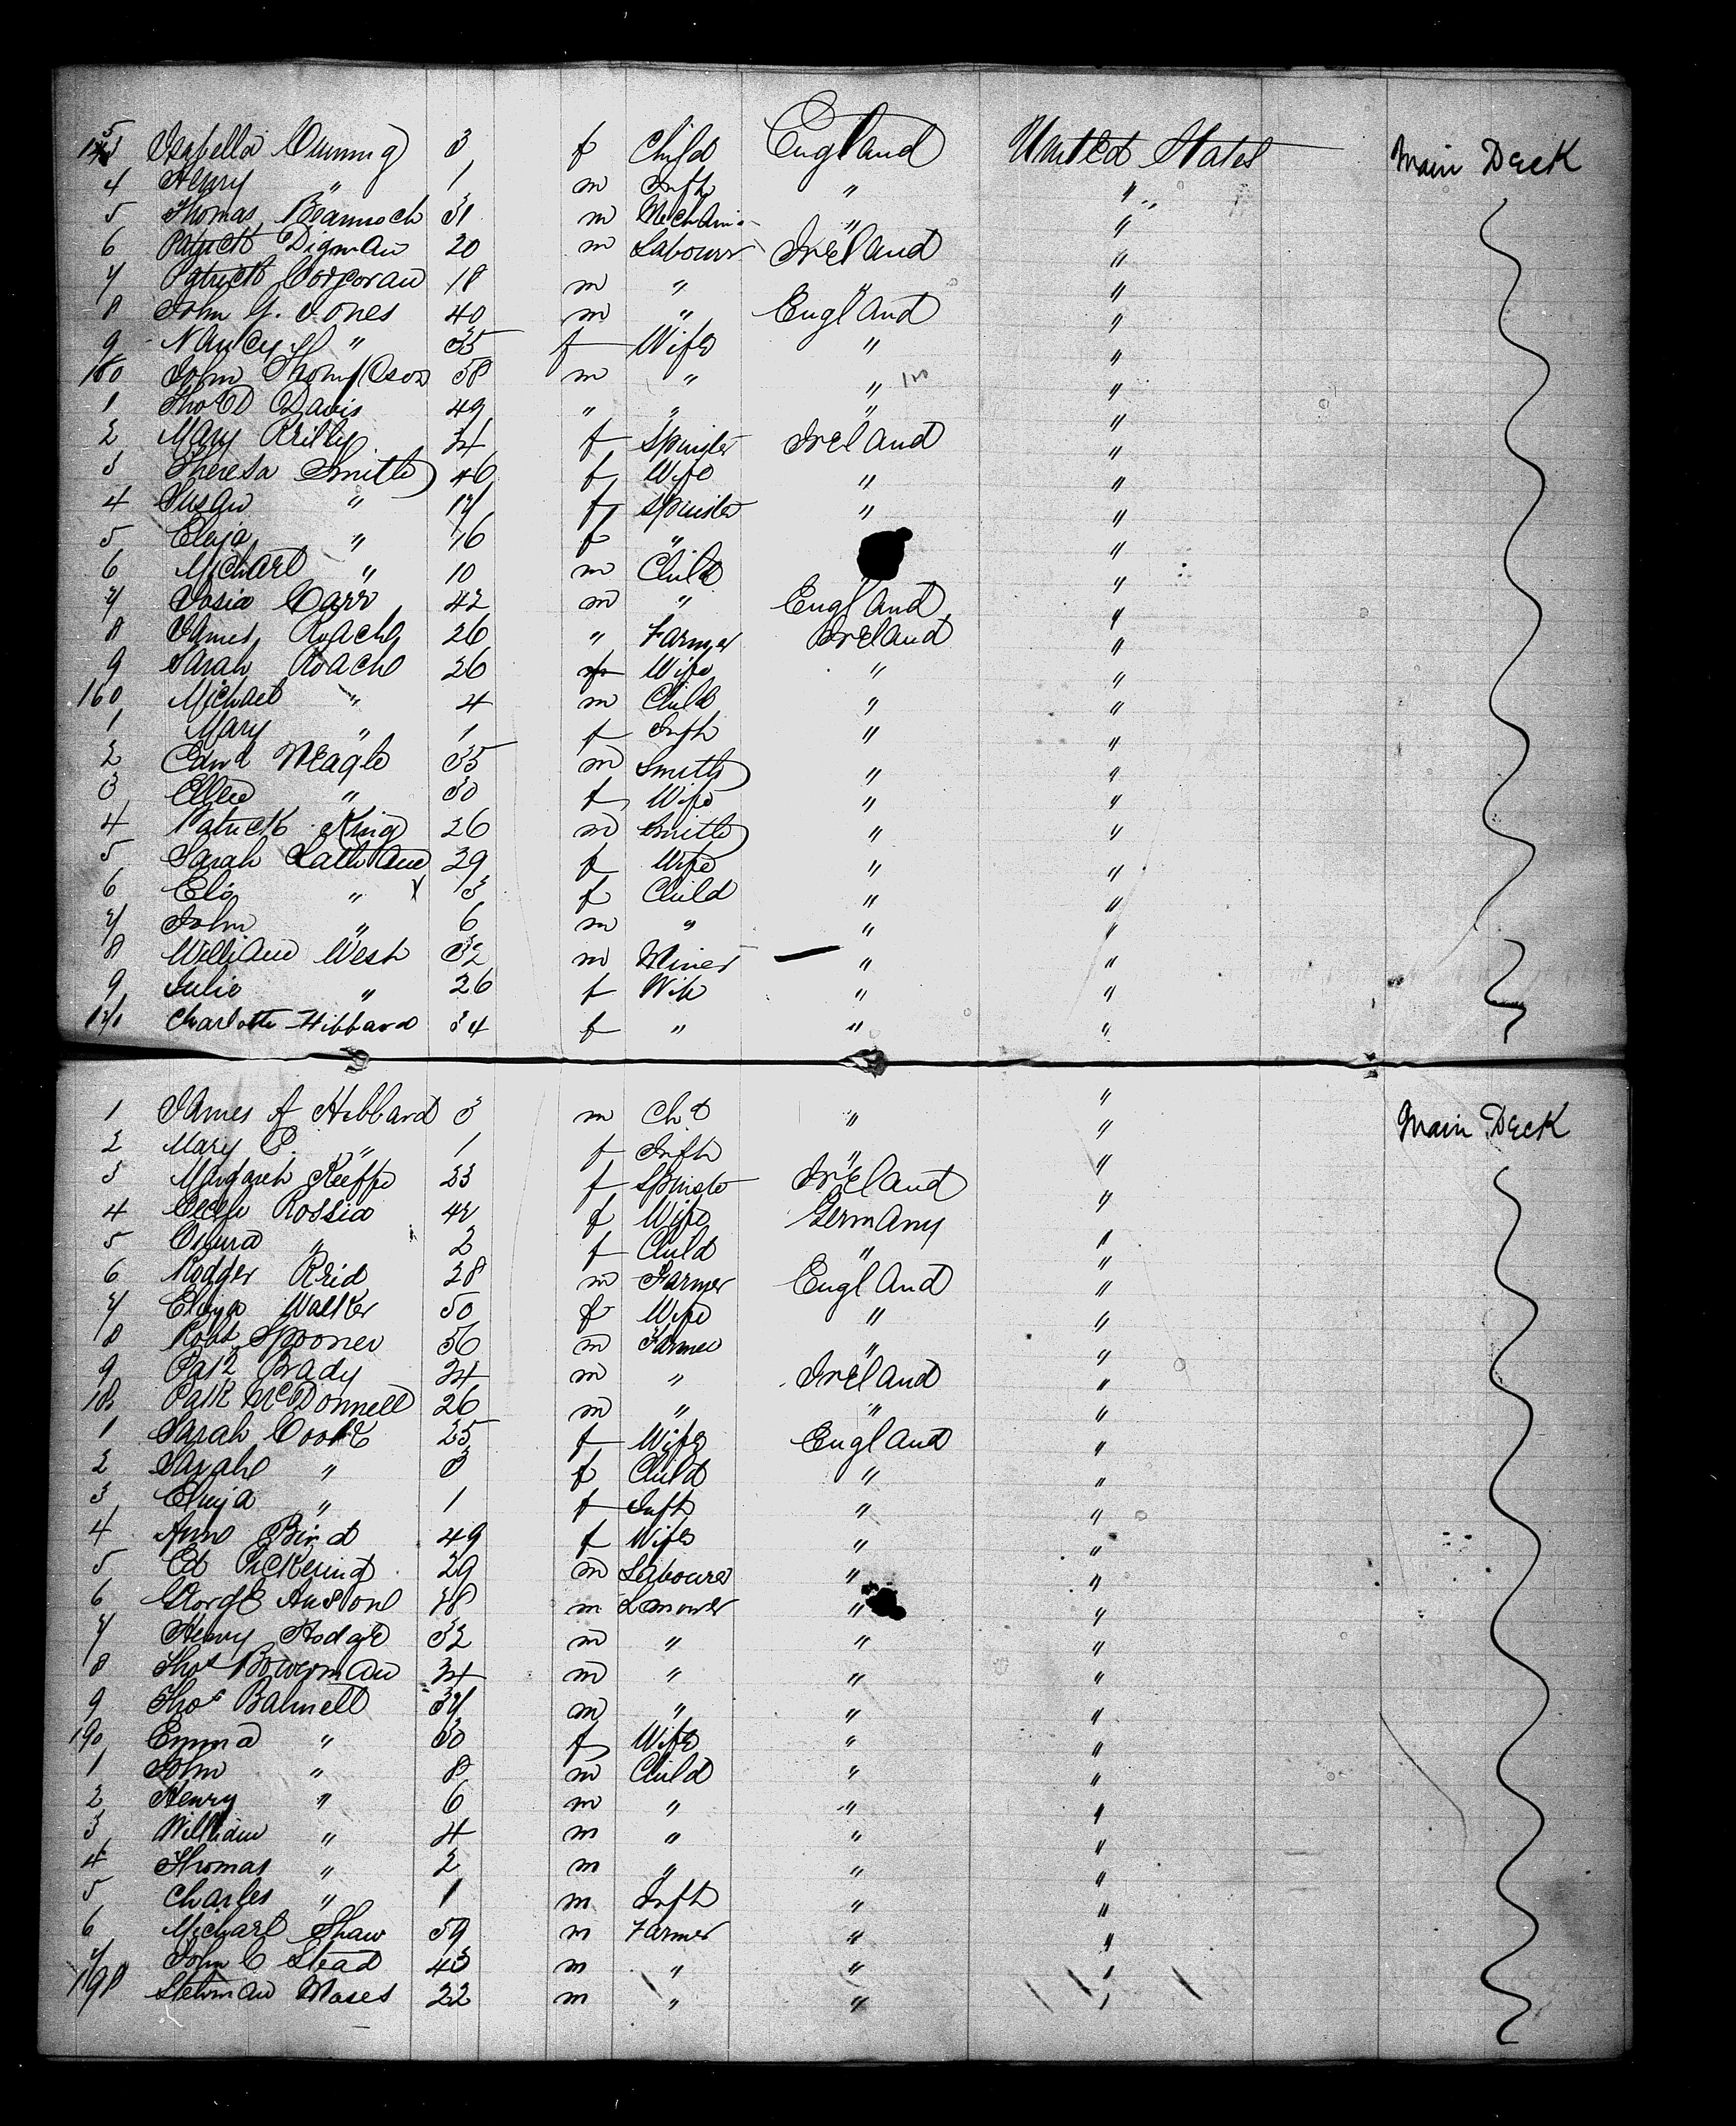 Isabella Cuming 3 f Child England United States Main Deck
4 Henry " 1 m Inft " "
5 Thomas 31 m Mechanic " "
6 Patrick Digman 20 m Labourr Ireland "
7 Patrick Corcoran 18 m " " "
8 John Y. Jones 40 m " England "
9 Nancy " 35 f Wife " "
John Thompson 58 m " " "
1 Thos D Davis 49 " " " "
2 Mary Reilly 24 f Spinster Ireland "
3 Theresa Smith 46 f Wife " "
4 Susan " 17 f Spinster " "
5 Eliza " 16 f " "
6 Michael " 10 m Child "
7 Josia Carr 42 m " England "
8 James Roache 26 " Farmer Ireland "
9 Sarah Roache 26 f Wife " "
160 Michael " 4 m Child " "
1 Mary " 1 f Inft " "
2 Edwd Neagle 35 m Smith " "
3 Ellen " 30 f Wife " "
4 Patrick King 26 m Smith " "
5 Sarah 29 f Wife " "
6 " 3 f Child " "
7 John " 6 m " " "
8 William West 32 m Miner " "
9 Julie " 26 f Wife " "
170 Charlotte Hibbard 34 f " " "
1 James A Hibbard 3 m Chd " "
2 Mary E. " 1 f Inft " " Main Deck
3 Margaret Keeffe 23 f Spinster Ireland "
4 Rossia f Wife Germany "
5 " 2 f Child " "
6 Rodger Reid 28 m Farmer England "
7 Eliza Walker 50 f Wife " "
8 Robt Spooner 56 m Farmer " "
9 Patk Brady 24 m " Ireland "
Patk McDonnell 26 m " " "
1 Sarah Cooke 25 f Wife England "
2 Sarah " 3 f Child " "
3 Eliza " 1 f Inft " "
4 Ann Bird 49 f Wife " "
5 Ed Pickering 29 m Labourer " "
6 George m " "
7 Henry Hodge 32 m " " "
8 Thos Bowerman 24 m " " "
9 Thos Balmell 37 m " " "
190 Emma " 30 f Wife " "
1 John " 8 m Child " "
2 Henry " 6 m " " "
3 William " 4 m " " "
4 Thomas " 2 m " " "
5 Charles " 1 m Inft " "
6 Michael Shaw 59 m Farmer " "
7 John C Stead 43 m " " "
198 Moses 22 m " " "